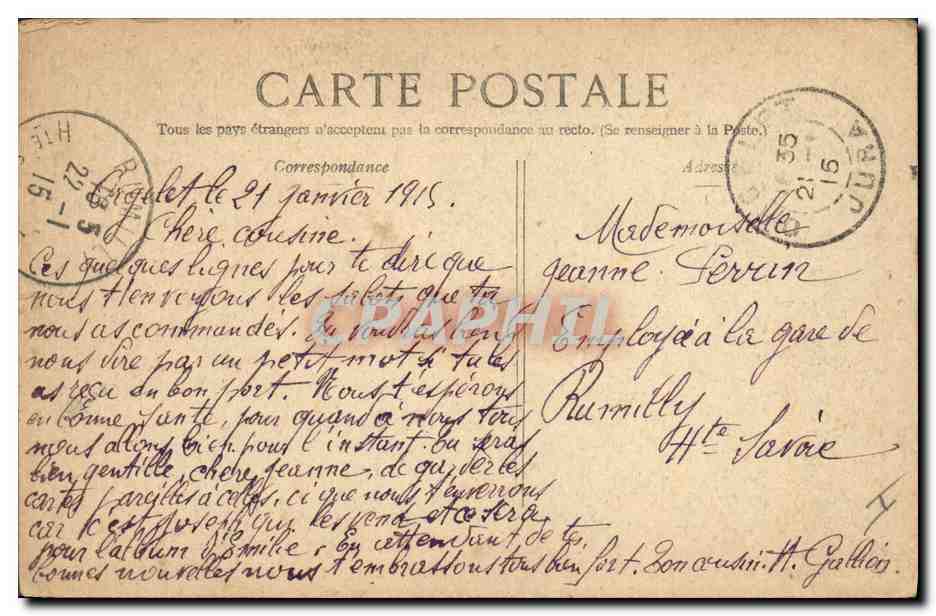 CARTE POSTALE
Tous les pays étrangers n'acceptent pas la correspondance au recto. (Se renseigner à la Poste.)
Correspondance
Adresse
HTE
22 - 1
15
35
21 - 1
15
le 21 janvier 1915.
Chère cousine.
Ces quelques lignes pour te dire que
nous t'envoyons les sabots que tu
nous as commandés. Tu voudras bien
nous dire par un petit mot si tu les
as reçu en bon port. Nous t'espérons
en bonne santé, pour quand à nous tous
nous allons bien pour l'instant. Tu seras
bien gentille, chère Jeanne, de garder les
cartes pareilles à celles, ci que nous t'enverrons
car c'est Joseph qui les vend et ce sera
pour l'album d'Emilie. En attendant de tes
bonnes nouvelles nous t'embrassons tous bien fort. Ton cousin. H.
Mademoiselle
Jeanne Perrin
Employée à la gare de
Rumilly
Hte Savoie
CPAPHIL